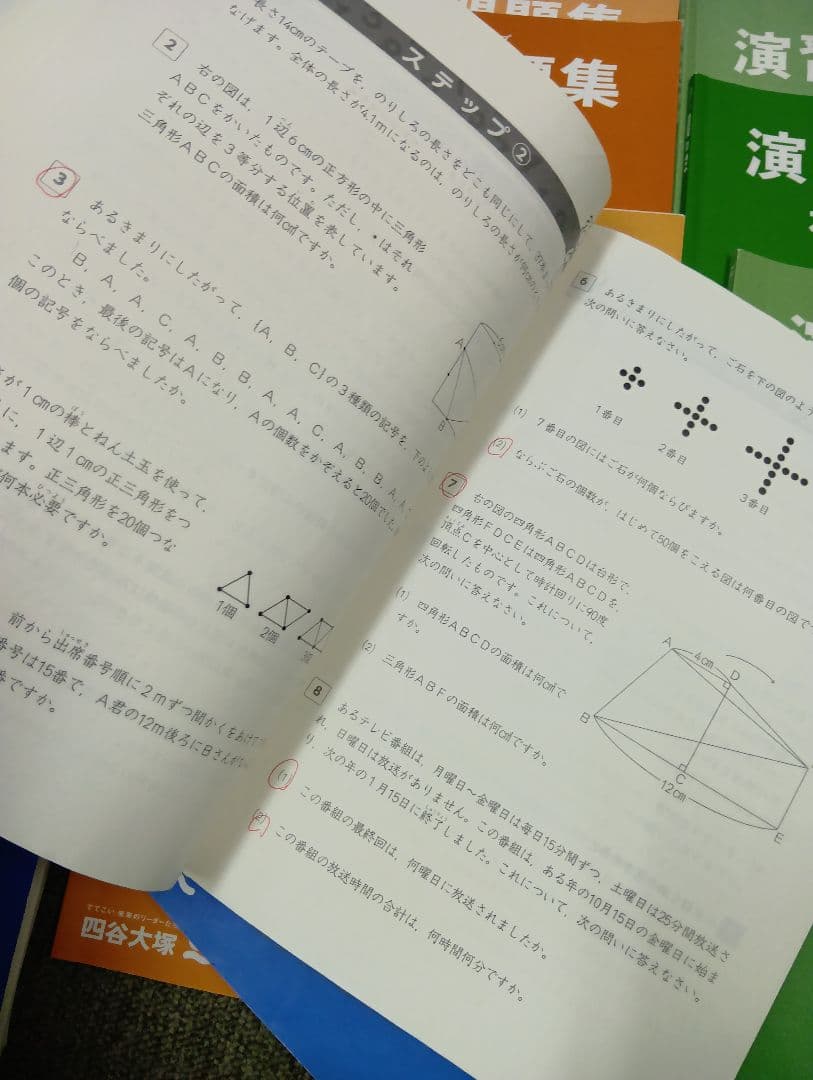 題集
題集
演習
演
ステップ②
長さ14cmのテープを，のりしろの長さをどこも同じにして，
なげます。全体の長さが4.1mになるのは，のりしろの長さが何
2
右の図は，1辺6cmの正方形の中に三角形
ABCをかいたものです。ただし，・はそれ
ぞれの辺を3等分する位置を表しています。
三角形ABCの面積は何cm²ですか。
A
B
3
あるきまりにしたがって，{A，B，C}の3種類の記号を，下のよ
ならべました。
B，A，A，C，A，B，B，A，A，C，A，B，B，A，A
このとき，最後の記号はAになり，Aの個数をかぞえると20個でした。
個の記号をならべましたか。
さが1cmの棒とねん土玉を使って，
に，1辺1cmの正三角形をつ
ます。正三角形を20個つな
何本必要ですか。
1個
2個
前から出席番号順に2mずつ間かくをあけて
番号は15番で，A君の12m後ろにBさんが
番ですか。
6
あるきまりにしたがって，ご石を下の図のよう
次の問いに答えなさい。
1番目
2番目
3番目
(1) 7番目の図にはご石が何個ならびますか。
(2) ならぶご石の個数が，はじめて50個をこえる図は何番目の図で
7
右の図の四角形ABCDは台形で，
四角形FDCEは四角形ABCDを，
頂点Cを中心として時計回りに90度
回転したものです。これについて，
次の問いに答えなさい。
(1) 四角形ABCDの面積は何cm²で
すか。
(2) 三角形ABFの面積は何cm²ですか。
A
4cm
D
B
C
12cm
E
8
あるテレビ番組は，月曜日～金曜日は毎日15分間ずつ，土曜日は25分間放送さ
れ，日曜日は放送がありません。この番組は，ある年の10月15日の金曜日に始ま
り，次の年の1月15日に終了しました。これについて，次の問いに答えなさい。
(1) この番組の最終回は，何曜日に放送されましたか。
(2) この番組の放送時間の合計は，何時間何分ですか。
四谷大塚